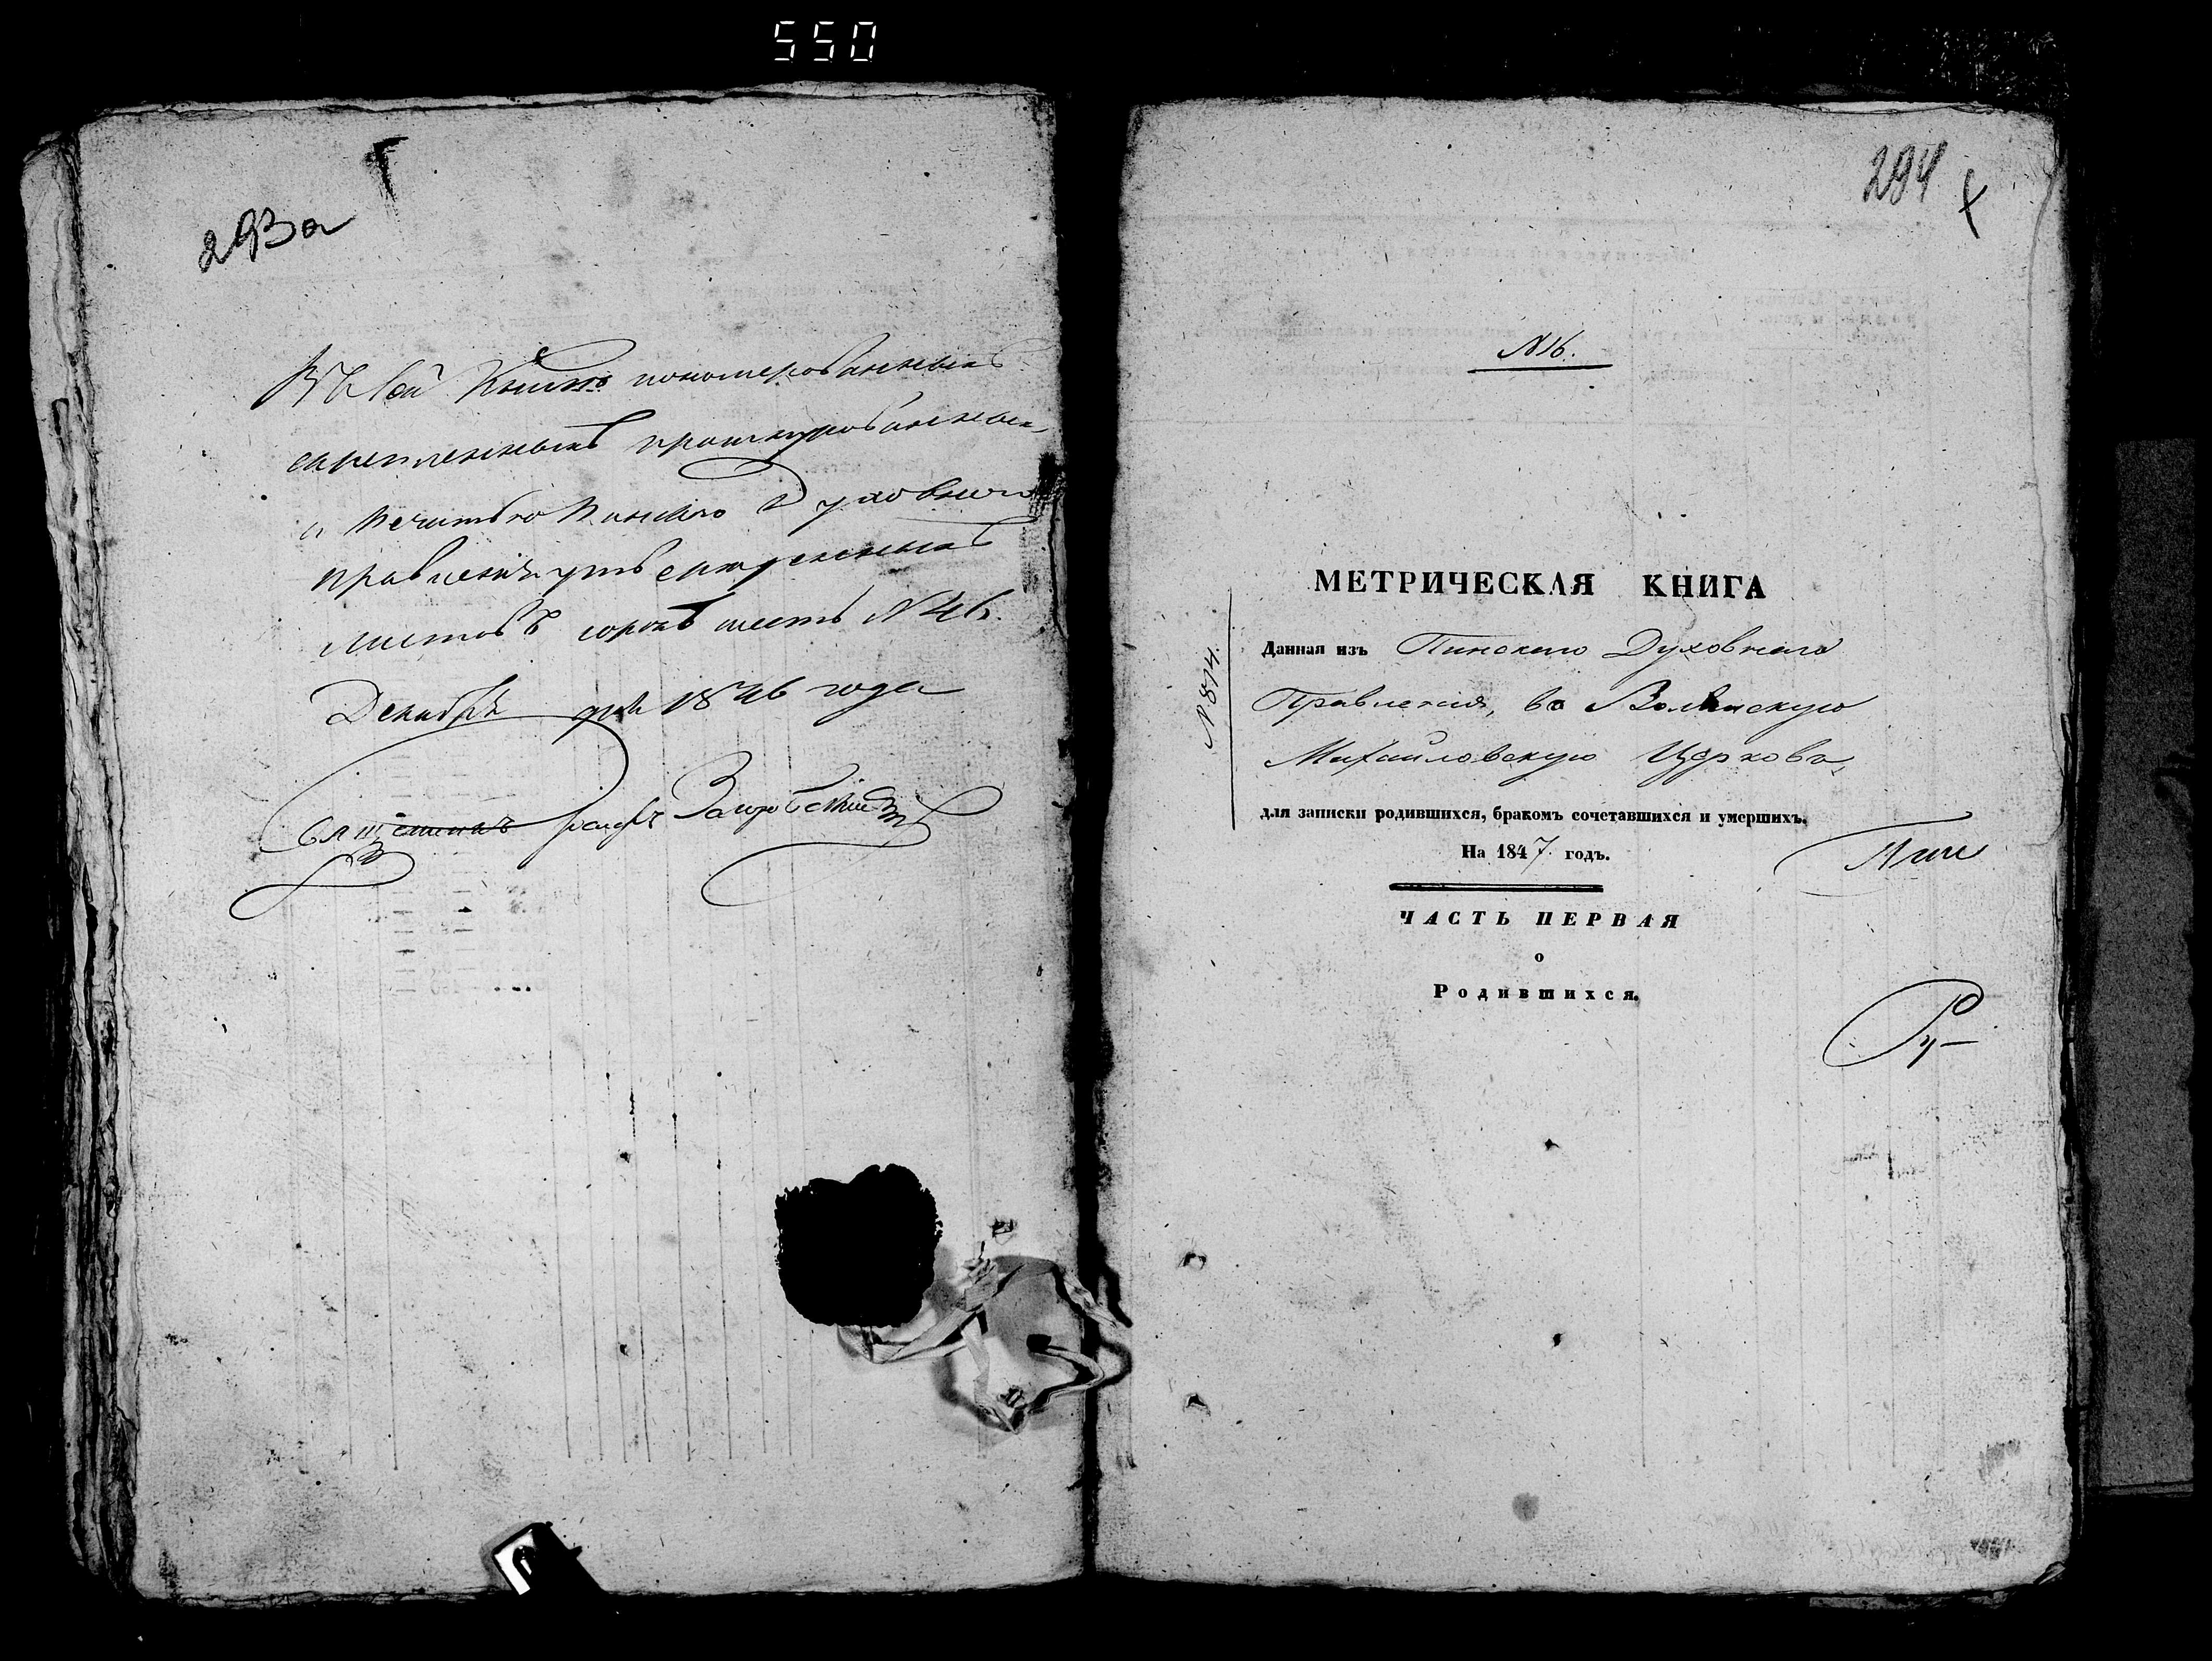 550
293 a
Въ сей Книге пономерованныхъ
скрепленныхъ прошнурованныхъ
и печатью Пинского Духовного
правления утвержденныхъ
листовъ сорокъ шесть N 46.
Декабря дня 1846 года
Священникъ Загоровский
294
N 16.
МЕТРИЧЕСКАЯ КНИГА
N. 874.
Данная изъ Пинскаго Духовнаго
Правления, въ
Михайловскую Церковь,
для записки родившихся, бракомъ сочетавшихся и умершихъ.
На 1847 годъ.
ЧАСТЬ ПЕРВАЯ
о
Родившихся.